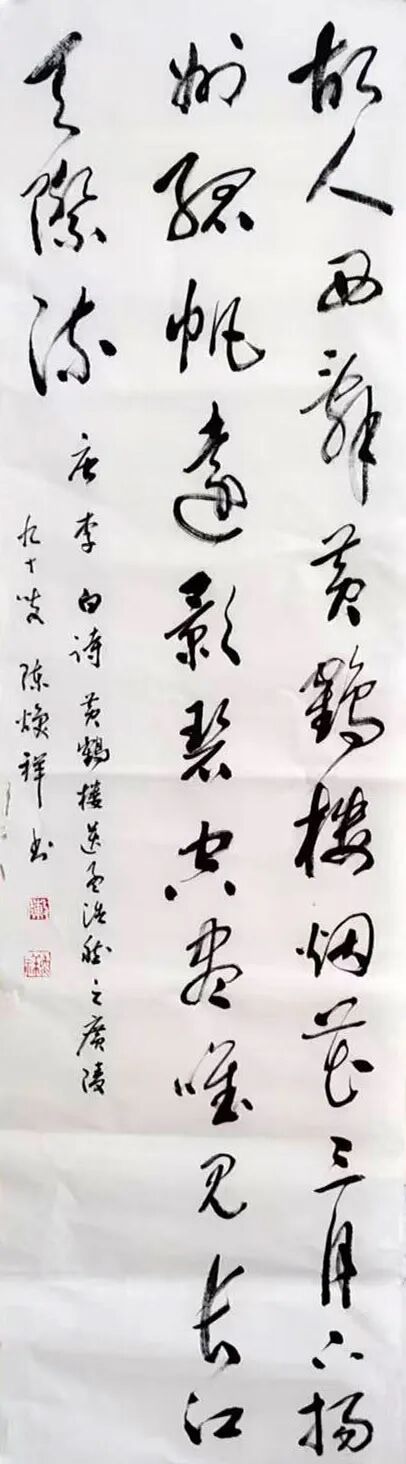 故人西辞黄鹤楼烟花三月下扬
州孤帆远影碧空尽唯见长江
天际流
唐李白诗黄鹤楼送孟浩然之廣陵
九十叟陈焕祥书